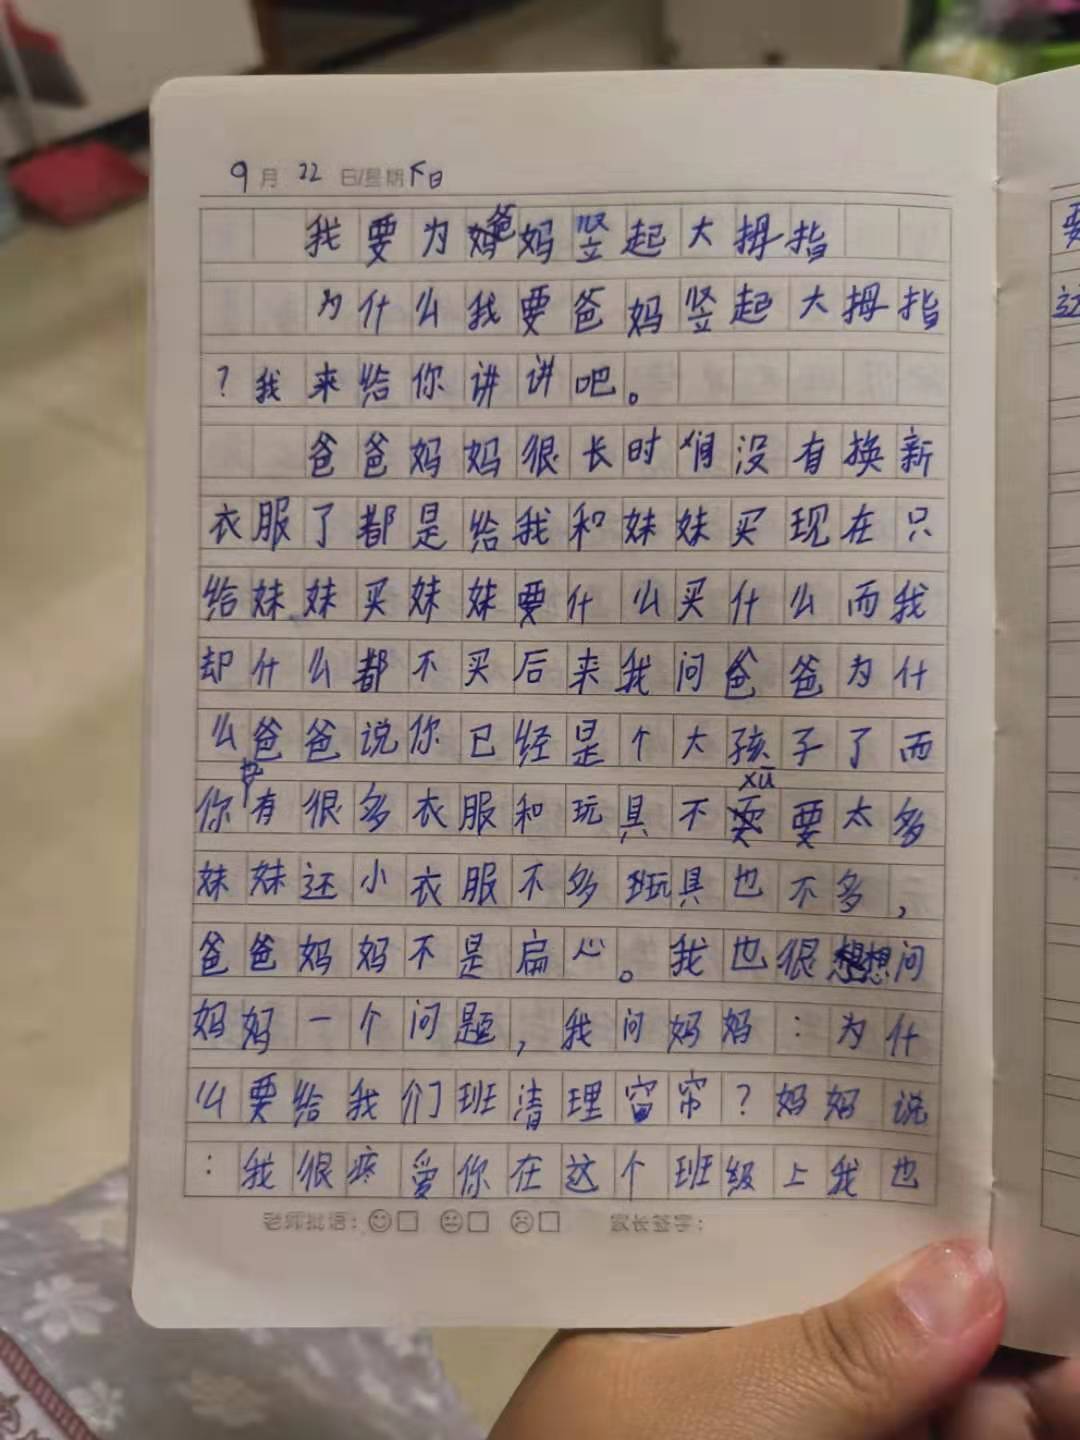 9月22日/星期日
我要为爸妈竖起大拇指
为什么我要爸妈竖起大拇指
？我来给你讲讲吧。
爸爸妈妈很长时间没有换新
衣服了都是给我和妹妹买现在只
给妹妹买妹妹要什么买什么而我
却什么都不买后来我问爸爸为什
么爸爸说你已经是个大孩子了而
你有很多衣服和玩具不xū要太多
妹妹还小衣服不多玩具也不多，
爸爸妈妈不是扁心。我也很想问
妈妈一个问题，我问妈妈：为什
么要给我们班清理窗帘？妈妈说
：我很疼爱你在这个班级上我也
老师批语： 家长签字：
要
这